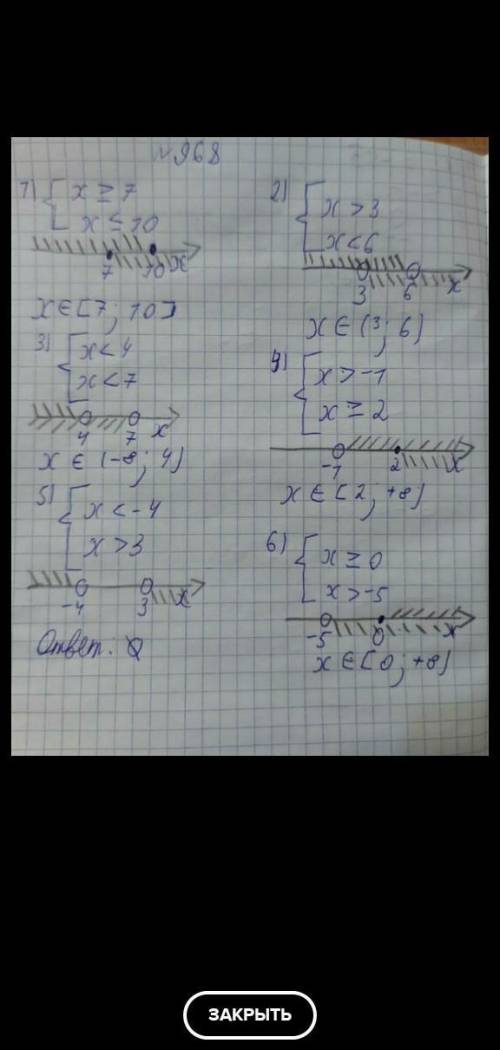 №968
1) { x ≥ 7
x ≤ 10
7 10 x
x∈[7; 10]
2) { x > 3
x < 6
3 6 x
x∈(3; 6)
3) { x < 4
x < 7
4 7 x
x ∈ (-8; 4)
4) { x > -1
x ≥ 2
-1 2 x
x∈[2; +8)
5) { x < -4
x > 3
-4 3 x
Ответ: ∅
6) { x ≥ 0
x > -5
-5 0 x
x∈[0; +8)
ЗАКРЫТЬ